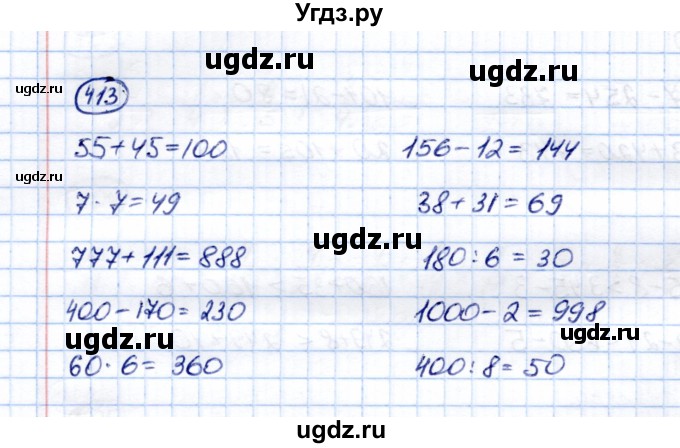 Угдз.ру
ugdz.ru
ugdz.ru
ugdz.ru
413
55+45=100
156-12=144
7·7=49
38+31=69
ugdz.ru
ugdz.ru
777+111=888
180:6=30
400-170=230
1000-2=998
ugdz.ru
ugdz.ru
60·6=360
400:8=50
ugdz.ru
ugdz.ru